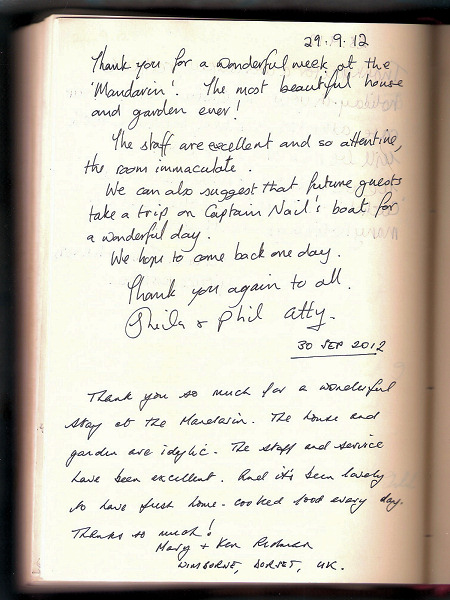 29.9.12
Thank you for a wonderful week at the
'Mandarin'. The most beautiful house
and garden ever!
The staff are excellent and so attentive,
the room immaculate.
We can also suggest that future guests
take a trip on Captain Nail's boat for
a wonderful day.
We hope to come back one day.
Thank you again to all.
Sheila & Phil Atty.
30 SEP 2012
Thank you so much for a wonderful
stay at the Mandarin. The house and
garden are idylic. The staff and service
have been excellent. And it's been lovely
to have fresh home-cooked food every day.
Thanks so much!
Marg + Ken Redman
WIMBORNE, DORSET, UK.